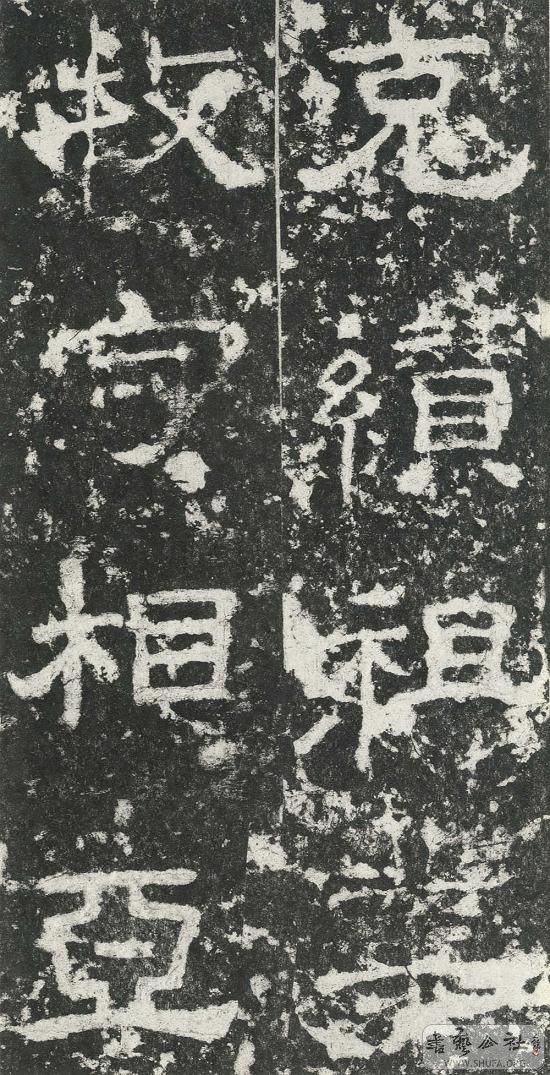 克纘祖
牧守相亞
書藝公社
WWW.SHUFA.ORG